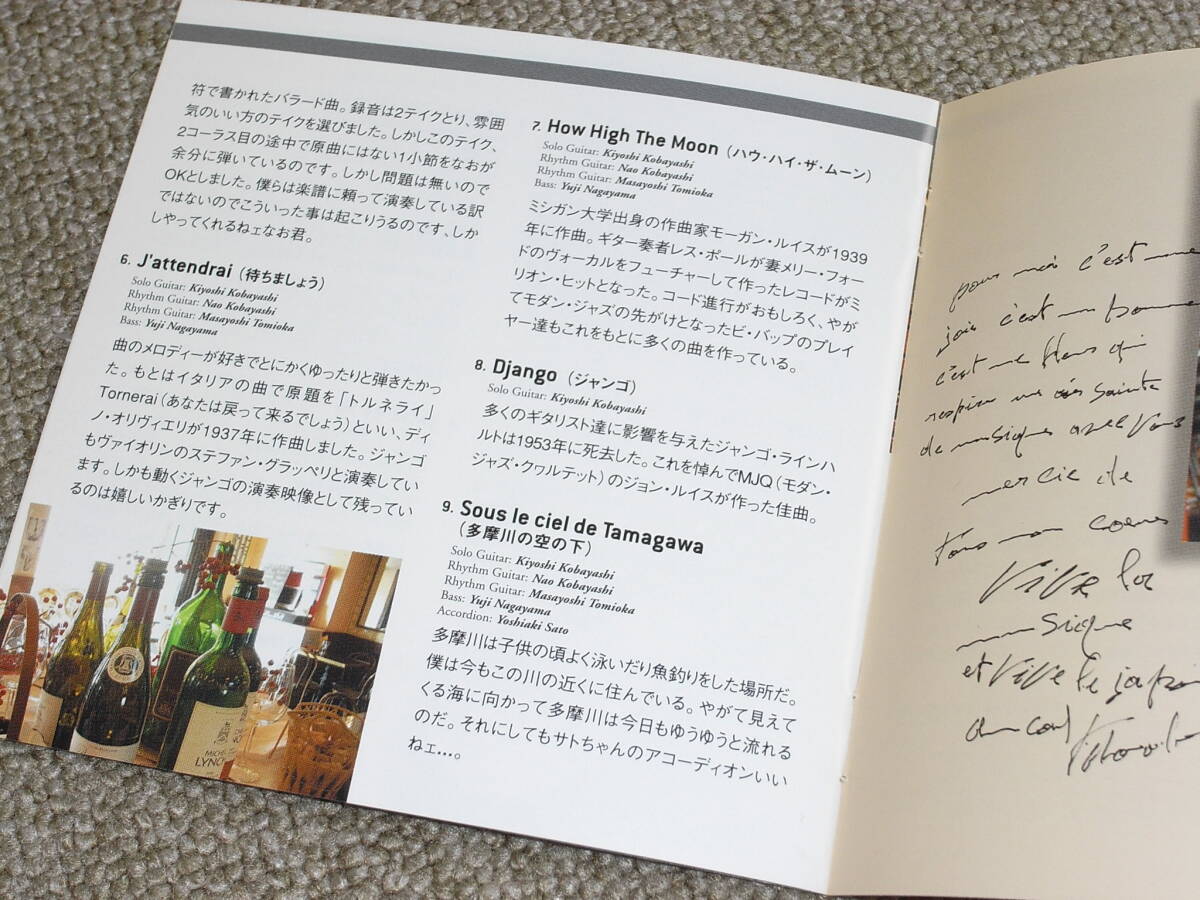 符で書かれたバラード曲。録音は2テイクとり、雰囲
気のいい方のテイクを選びました。しかしこのテイク、
2コーラス目の途中で原曲にはない1小節をなおが
余分に弾いているのです。しかし問題は無いので
OKとしました。僕らは楽譜に頼って演奏している訳
ではないのでこういった事は起こりうるのです、しか
しやってくれるねェなお君。
6. J'attendrai（待ちましょう）
Solo Guitar: Kiyoshi Kobayashi
Rhythm Guitar: Nao Kobayashi
Rhythm Guitar: Masayoshi Tomioka
Bass: Yuji Nagayama
曲のメロディーが好きでとにかくゆったりと弾きたかっ
た。もとはイタリアの曲で原題を「トルネライ」
Tornerai（あなたは戻って来るでしょう）といい、ディ
ノ・オリヴィエリが1937年に作曲しました。ジャンゴ
もヴァイオリンのステファン・グラッペリと演奏してい
ます。しかも動くジャンゴの演奏映像として残ってい
るのは嬉しいかぎりです。
MICHEL
LYNCH
7. How High The Moon（ハウ・ハイ・ザ・ムーン）
Solo Guitar: Kiyoshi Kobayashi
Rhythm Guitar: Nao Kobayashi
Rhythm Guitar: Masayoshi Tomioka
Bass: Yuji Nagayama
ミシガン大学出身の作曲家モーガン・ルイスが1939
年に作曲。ギター奏者レス・ポールが妻メリー・フォー
ドのヴォーカルをフューチャーして作ったレコードがミ
リオン・ヒットとなった。コード進行がおもしろく、やが
てモダン・ジャズの先がけとなったビ・バップのプレイ
ヤー達もこれをもとに多くの曲を作っている。
8. Django（ジャンゴ）
Solo Guitar: Kiyoshi Kobayashi
多くのギタリスト達に影響を与えたジャンゴ・ラインハ
ルトは1953年に死去した。これを悼んでMJQ（モダン・
ジャズ・クヮルテット）のジョン・ルイスが作った佳曲。
9. Sous le ciel de Tamagawa
（多摩川の空の下）
Solo Guitar: Kiyoshi Kobayashi
Rhythm Guitar: Nao Kobayashi
Rhythm Guitar: Masayoshi Tomioka
Bass: Yuji Nagayama
Accordion: Yoshiaki Sato
多摩川は子供の頃よく泳いだり魚釣りをした場所だ。
僕は今もこの川の近くに住んでいる。やがて見えて
くる海に向かって多摩川は今日もゆうゆうと流れる
のだ。それにしてもサトちゃんのアコーディオンいい
ねェ…。
pour moi c'est une
joie c'est un
c'est une fleur qui
respire
de musique avec vous
merci de
mon coeur
Vive la
musique
et Vive le japon